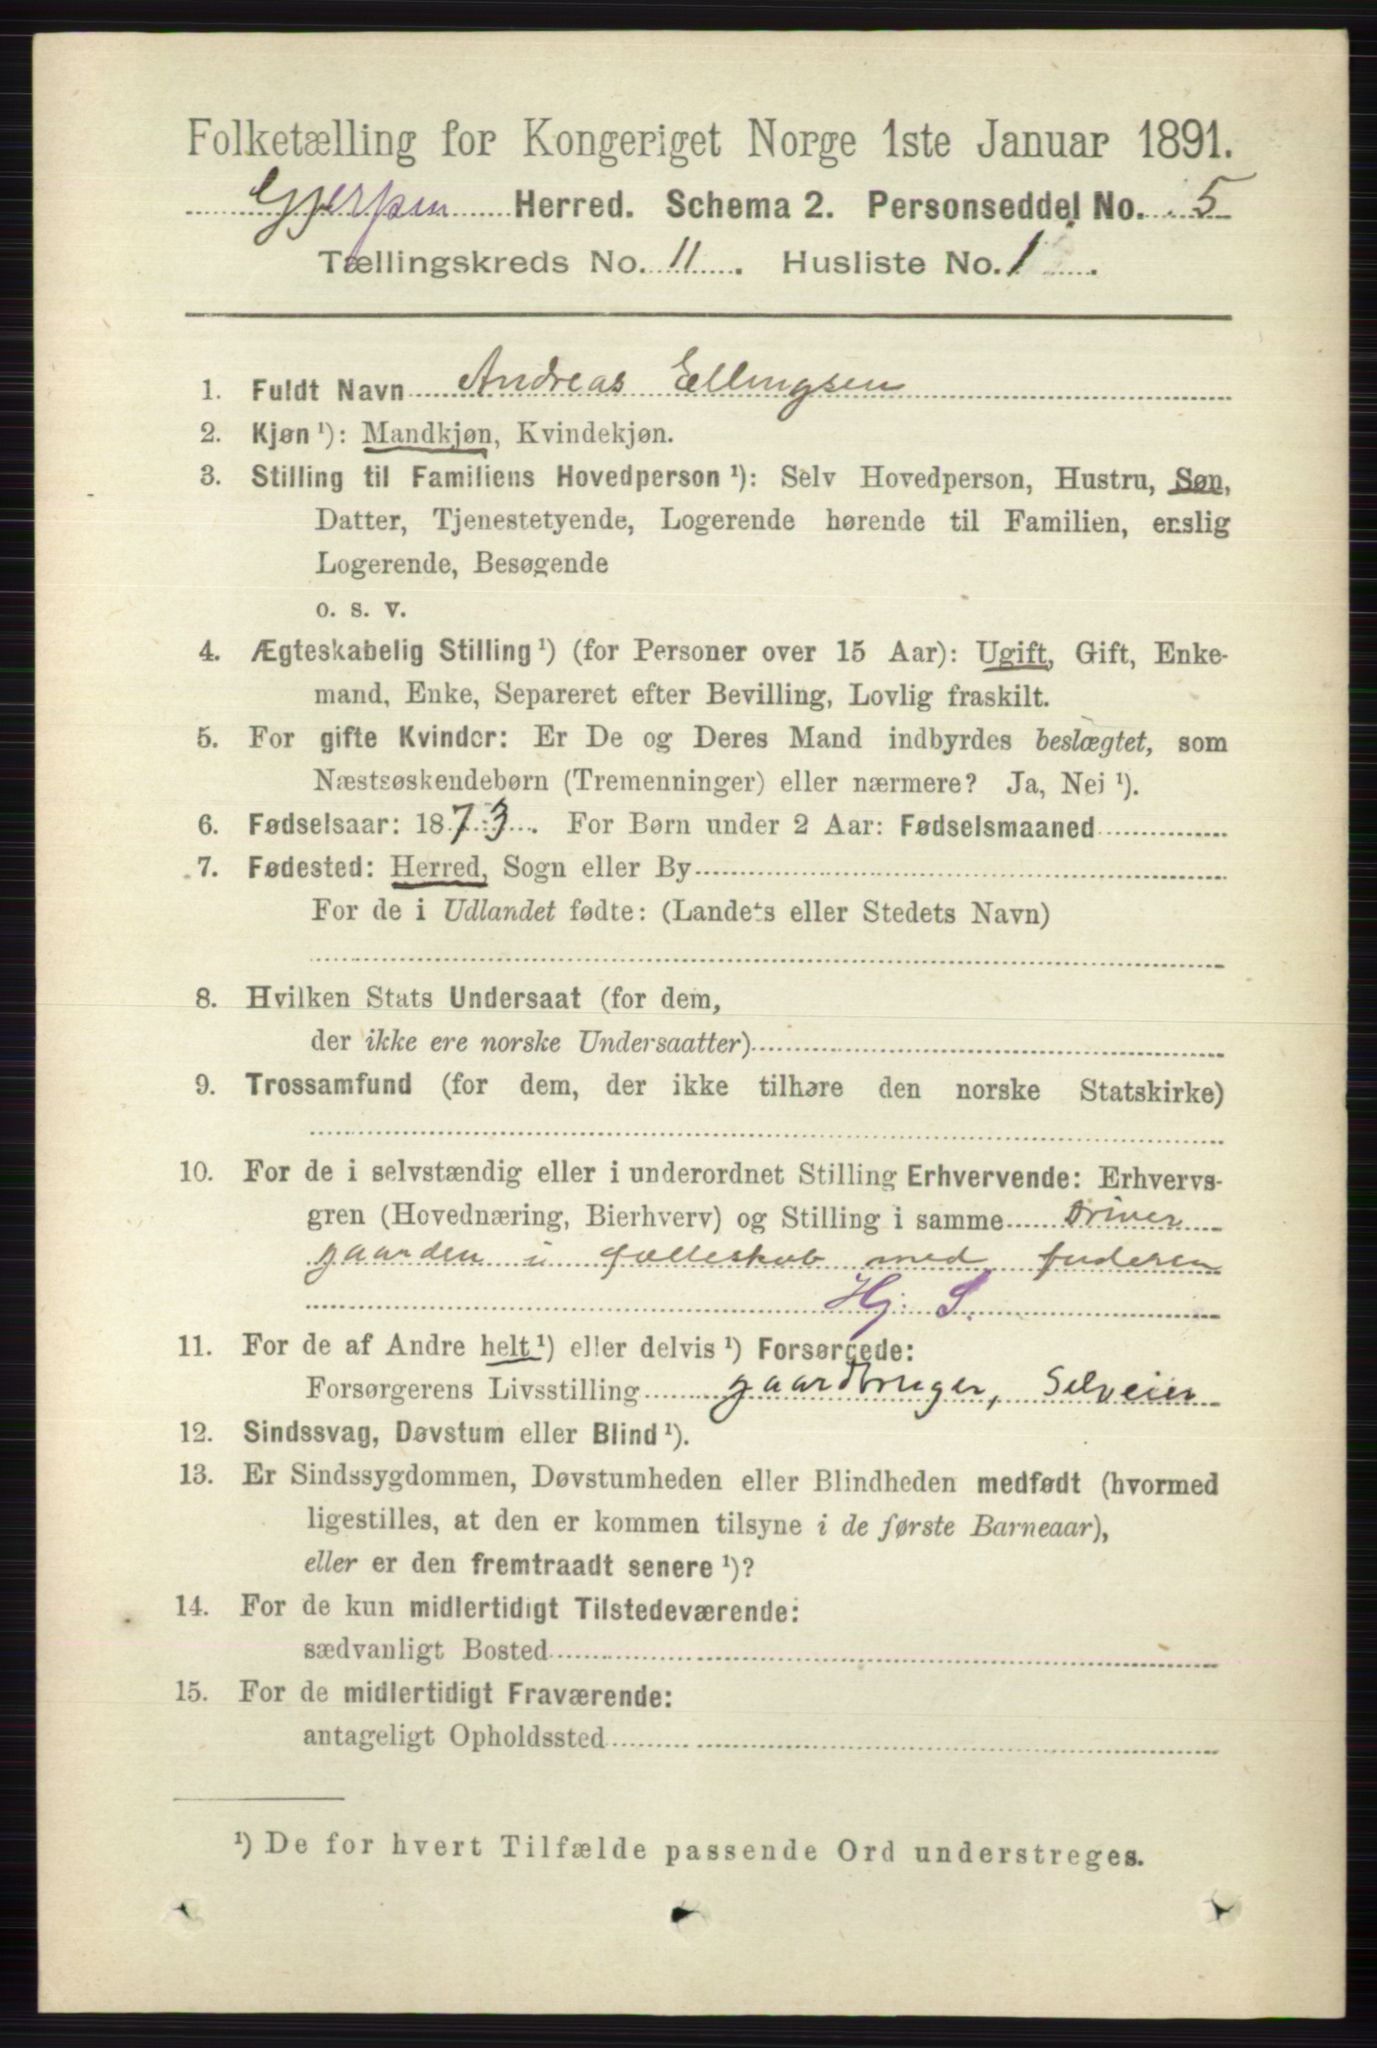 Folketælling for Kongeriget Norge 1ste Januar 1891.
Gjerpen Herred. Schema 2. Personseddel No. 5
Tællingskreds No. 11. Husliste No. 1.
1. Fuldt Navn Andreas Ellingsen
2. Kjøn ¹): Mandkjøn, Kvindekjøn.
3. Stilling til Familiens Hovedperson ¹): Selv Hovedperson, Hustru, Søn,
Datter, Tjenestetyende, Logerende hørende til Familien, enslig
Logerende, Besøgende
o. s. v.
4. Ægteskabelig Stilling ¹) (for Personer over 15 Aar): Ugift, Gift, Enke-
mand, Enke, Separeret efter Bevilling, Lovlig fraskilt.
5. For gifte Kvinder: Er De og Deres Mand indbyrdes beslægtet, som
Næstsøskendebørn (Tremenninger) eller nærmere? Ja, Nei ¹).
6. Fødselsaar: 1873. For Børn under 2 Aar: Fødselsmaaned
7. Fødested: Herred, Sogn eller By
For de i Udlandet fødte: (Landets eller Stedets Navn)
8. Hvilken Stats Undersaat (for dem,
der ikke ere norske Undersaatter)
9. Trossamfund (for dem, der ikke tilhøre den norske Statskirke)
10. For de i selvstændig eller i underordnet Stilling Erhvervende: Erhvervs-
gren (Hovednæring, Bierhverv) og Stilling i samme Driver
gaarden i fælleskab med faderen
Hj. S.
11. For de af Andre helt ¹) eller delvis ¹) Forsørgede:
Forsørgerens Livsstilling gaardbruger, Selveier
12. Sindssvag, Døvstum eller Blind ¹).
13. Er Sindssygdommen, Døvstumheden eller Blindheden medfødt (hvormed
ligestilles, at den er kommen tilsyne i de første Barneaar),
eller er den fremtraadt senere ¹)?
14. For de kun midlertidigt Tilstedeværende:
sædvanligt Bosted
15. For de midlertidigt Fraværende:
antageligt Opholdssted
¹) De for hvert Tilfælde passende Ord understreges.